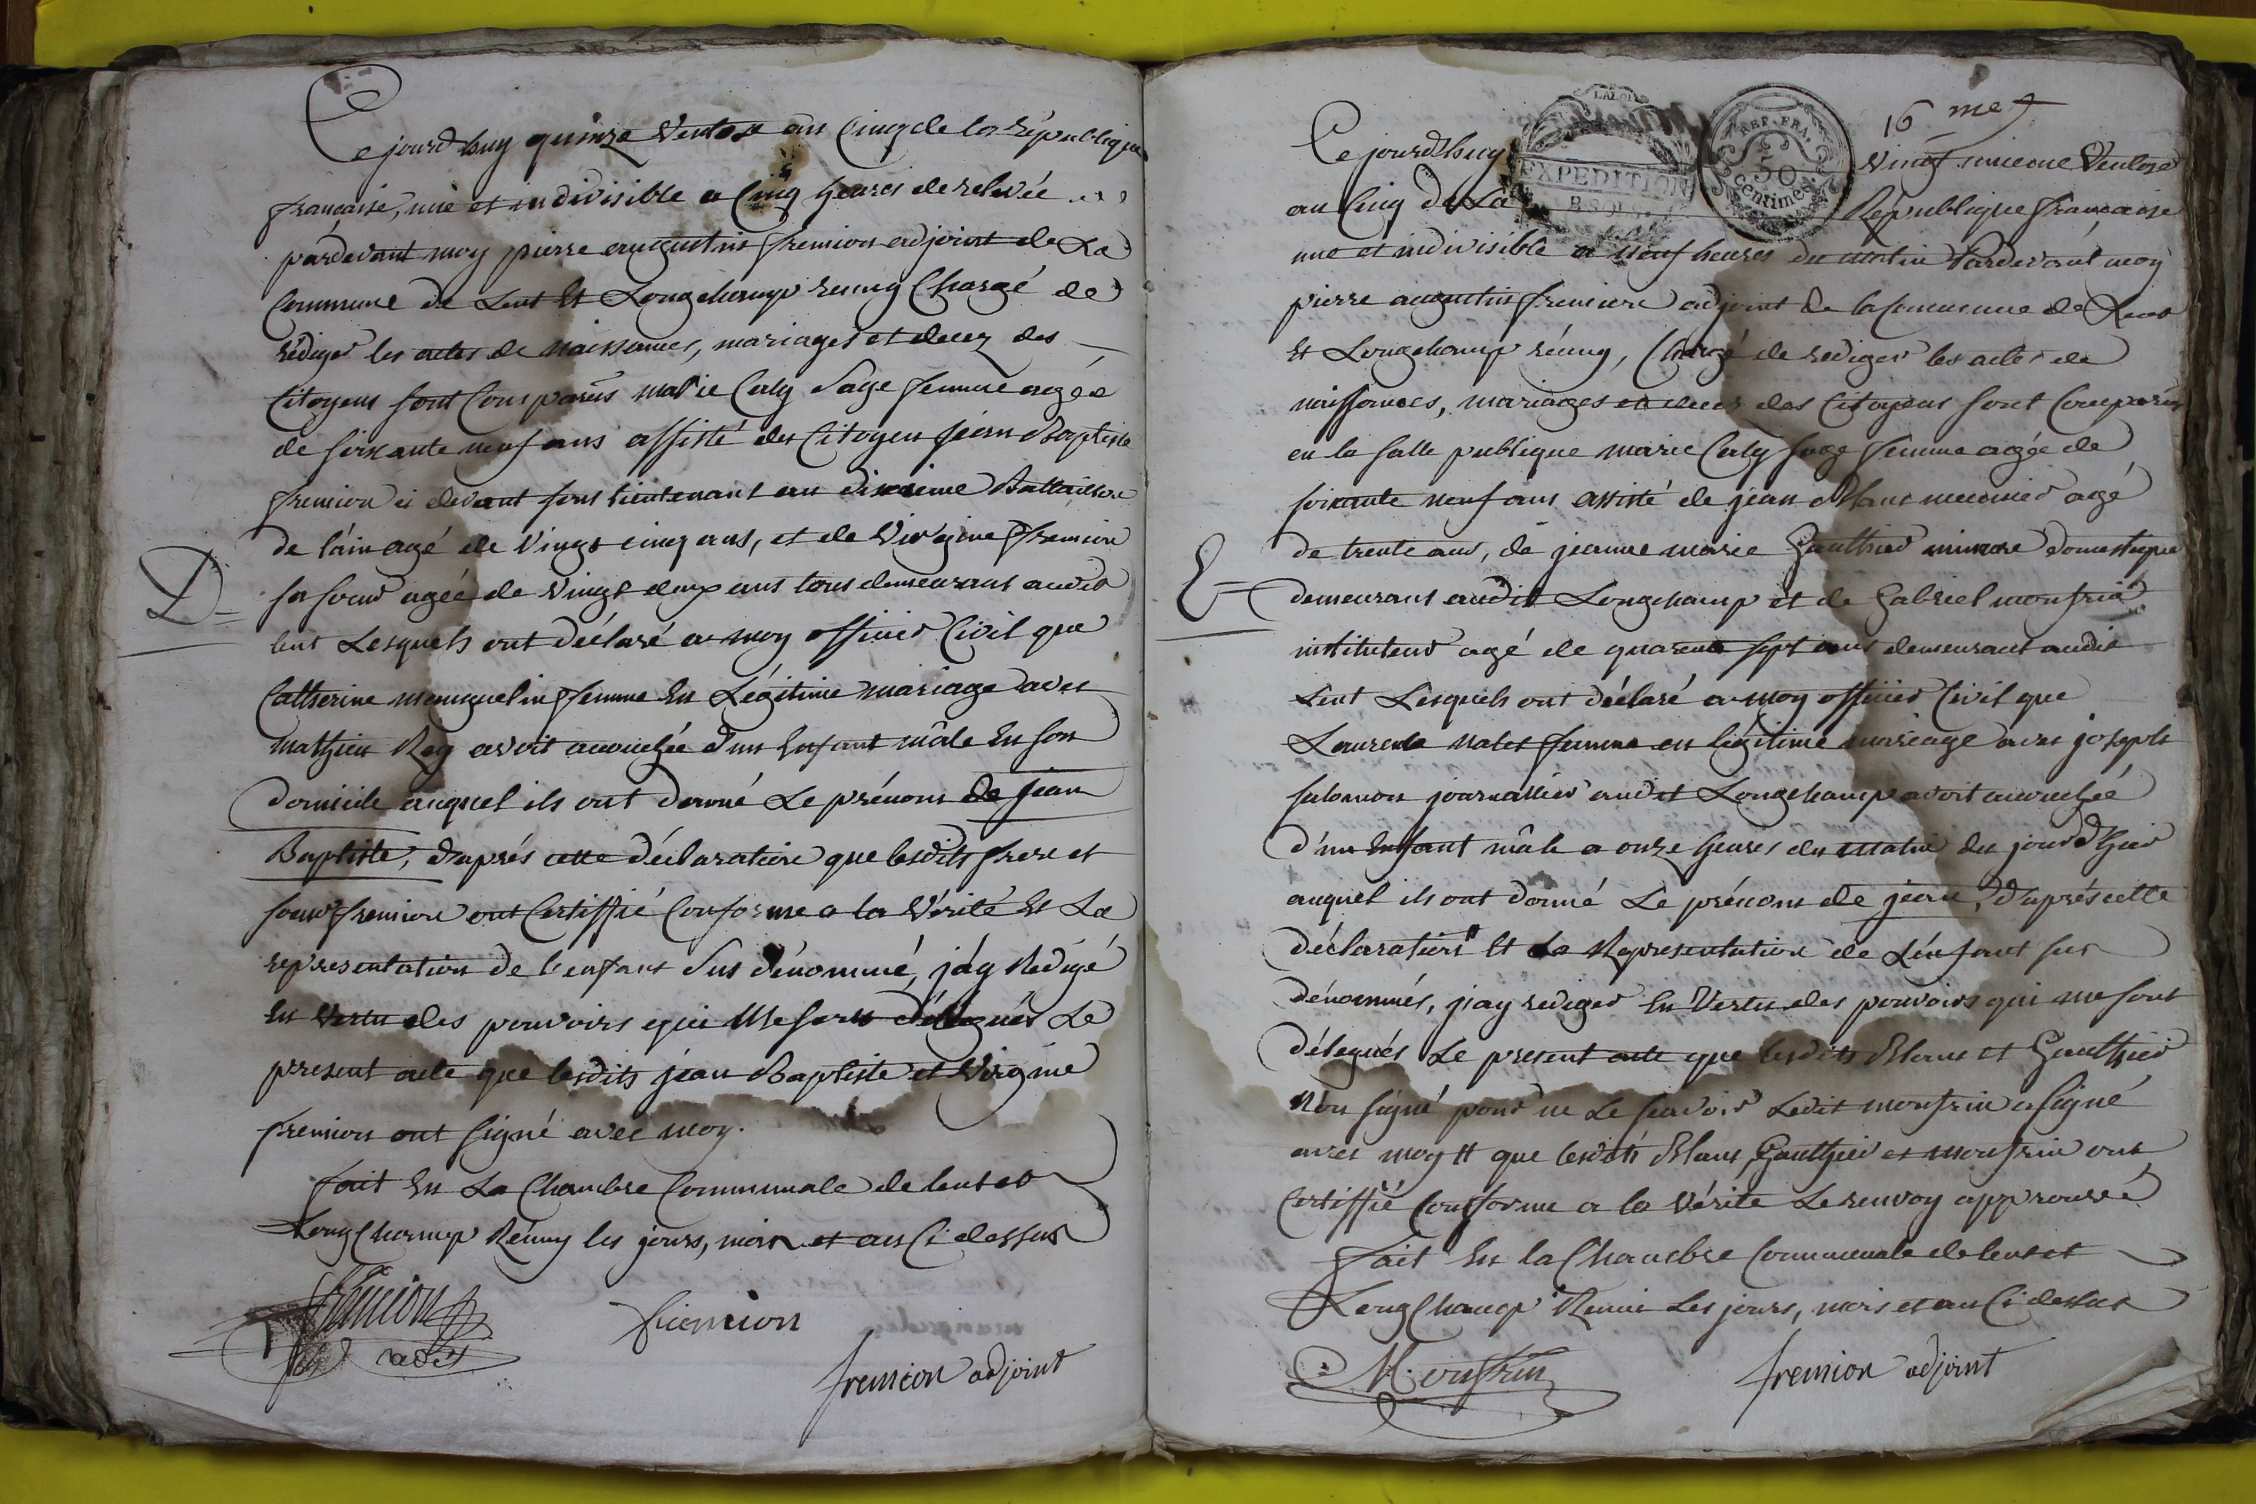 Ce jourd'huy quinze Ventose an Cinq de la République
française, une et indivisible a Cinq heures de relevée
pardevant moy pierre augustin fremion adjoint de La
Commune de Lent Et Longchamp reuny Chargé de
rédiger les actes de naissances, mariages et decez des
Citoyens sont Comparus marie Caty Sage femme agée
de soixante neuf ans assisté des Citoyen jean Baptiste
fremion ci devant sous lieutenant au dixieme Battaillon
de l'ain agé de Vingt cinq ans, et de Virginie fremion
sa soeur agée de Vingt deux ans tous demeurant audit
D=
lent Lesquels ont déclaré a moy officier Civil que
Catherine manguelin femme En Légitime mariage avec
mathieu Rey avoit accouchée d'un Enfant mâle En son
domicile auquel ils ont donné Le prénom de jean
Baptiste, d'aprés cette déclaration que lesdits frere et
soeur fremion ont Certiffié Conforme a la Vérité Et La
representation de l'enfant Sus dénommé, j'ay Redigé
En Vertu des pouvoirs qui Me sont délégués Le
present acte que lesdits jean Baptiste et Virginie
fremion ont signé avec moy.
fait En La Chambre Communale de lent et
LongChamp Réuny les jours, mois et an Ci dessus
fremion
fremion
fremion adjoint
16 me
Ce jourd'huy vingt unieme Ventose
EXPEDITION
REP. FRA.
50
centimes.
an Cinq de La République française
une et indivisible a Neuf heures du matin Pardevant moy
pierre augustin fremion adjoint de la Commune de Lent
Et Longchamp réuny, Chargé de rediger les actes de
naissances, mariages et decez des Citoyens sont Comparus
en la salle publique marie Caty sage femme agée de
soixante neuf ans assisté de jean Blanc meunier agé
de trente ans, de jeanne marie Gauthier mineure domestique
E=
demeurant audit Longchamp et de Gabriel monfrin
instituteur agé de quarente sept ans demeurant audit
Lent Lesquels ont déclaré a moy officier Civil que
Laurence femme en légitime mariage avec joseph
salomon journallier audit Longchamp avoit accouchée
d'un Enfant mâle a onze heures du matin du jour d'hier
auquel ils ont donné Le prénom de jean, d'aprés cette
déclaration # Et La Representation de L'enfant sus
dénommés, j'ay rediger En Vertu des pouvoirs qui me sont
délegués Le present acte que lesdits Blanc et Gauthier
non signé pour ne Le scavoir Ledit monfrin a signé
avec moy # que lesdits Blanc, Gauthier et monfrin ont
Certiffié Conforme a la Vérité Le renvoy approuvé
fait En la Chambre Communale de lent et
LongChamp Reuni Les jours, mois et an Ci dessus
Monfrin
fremion adjoint